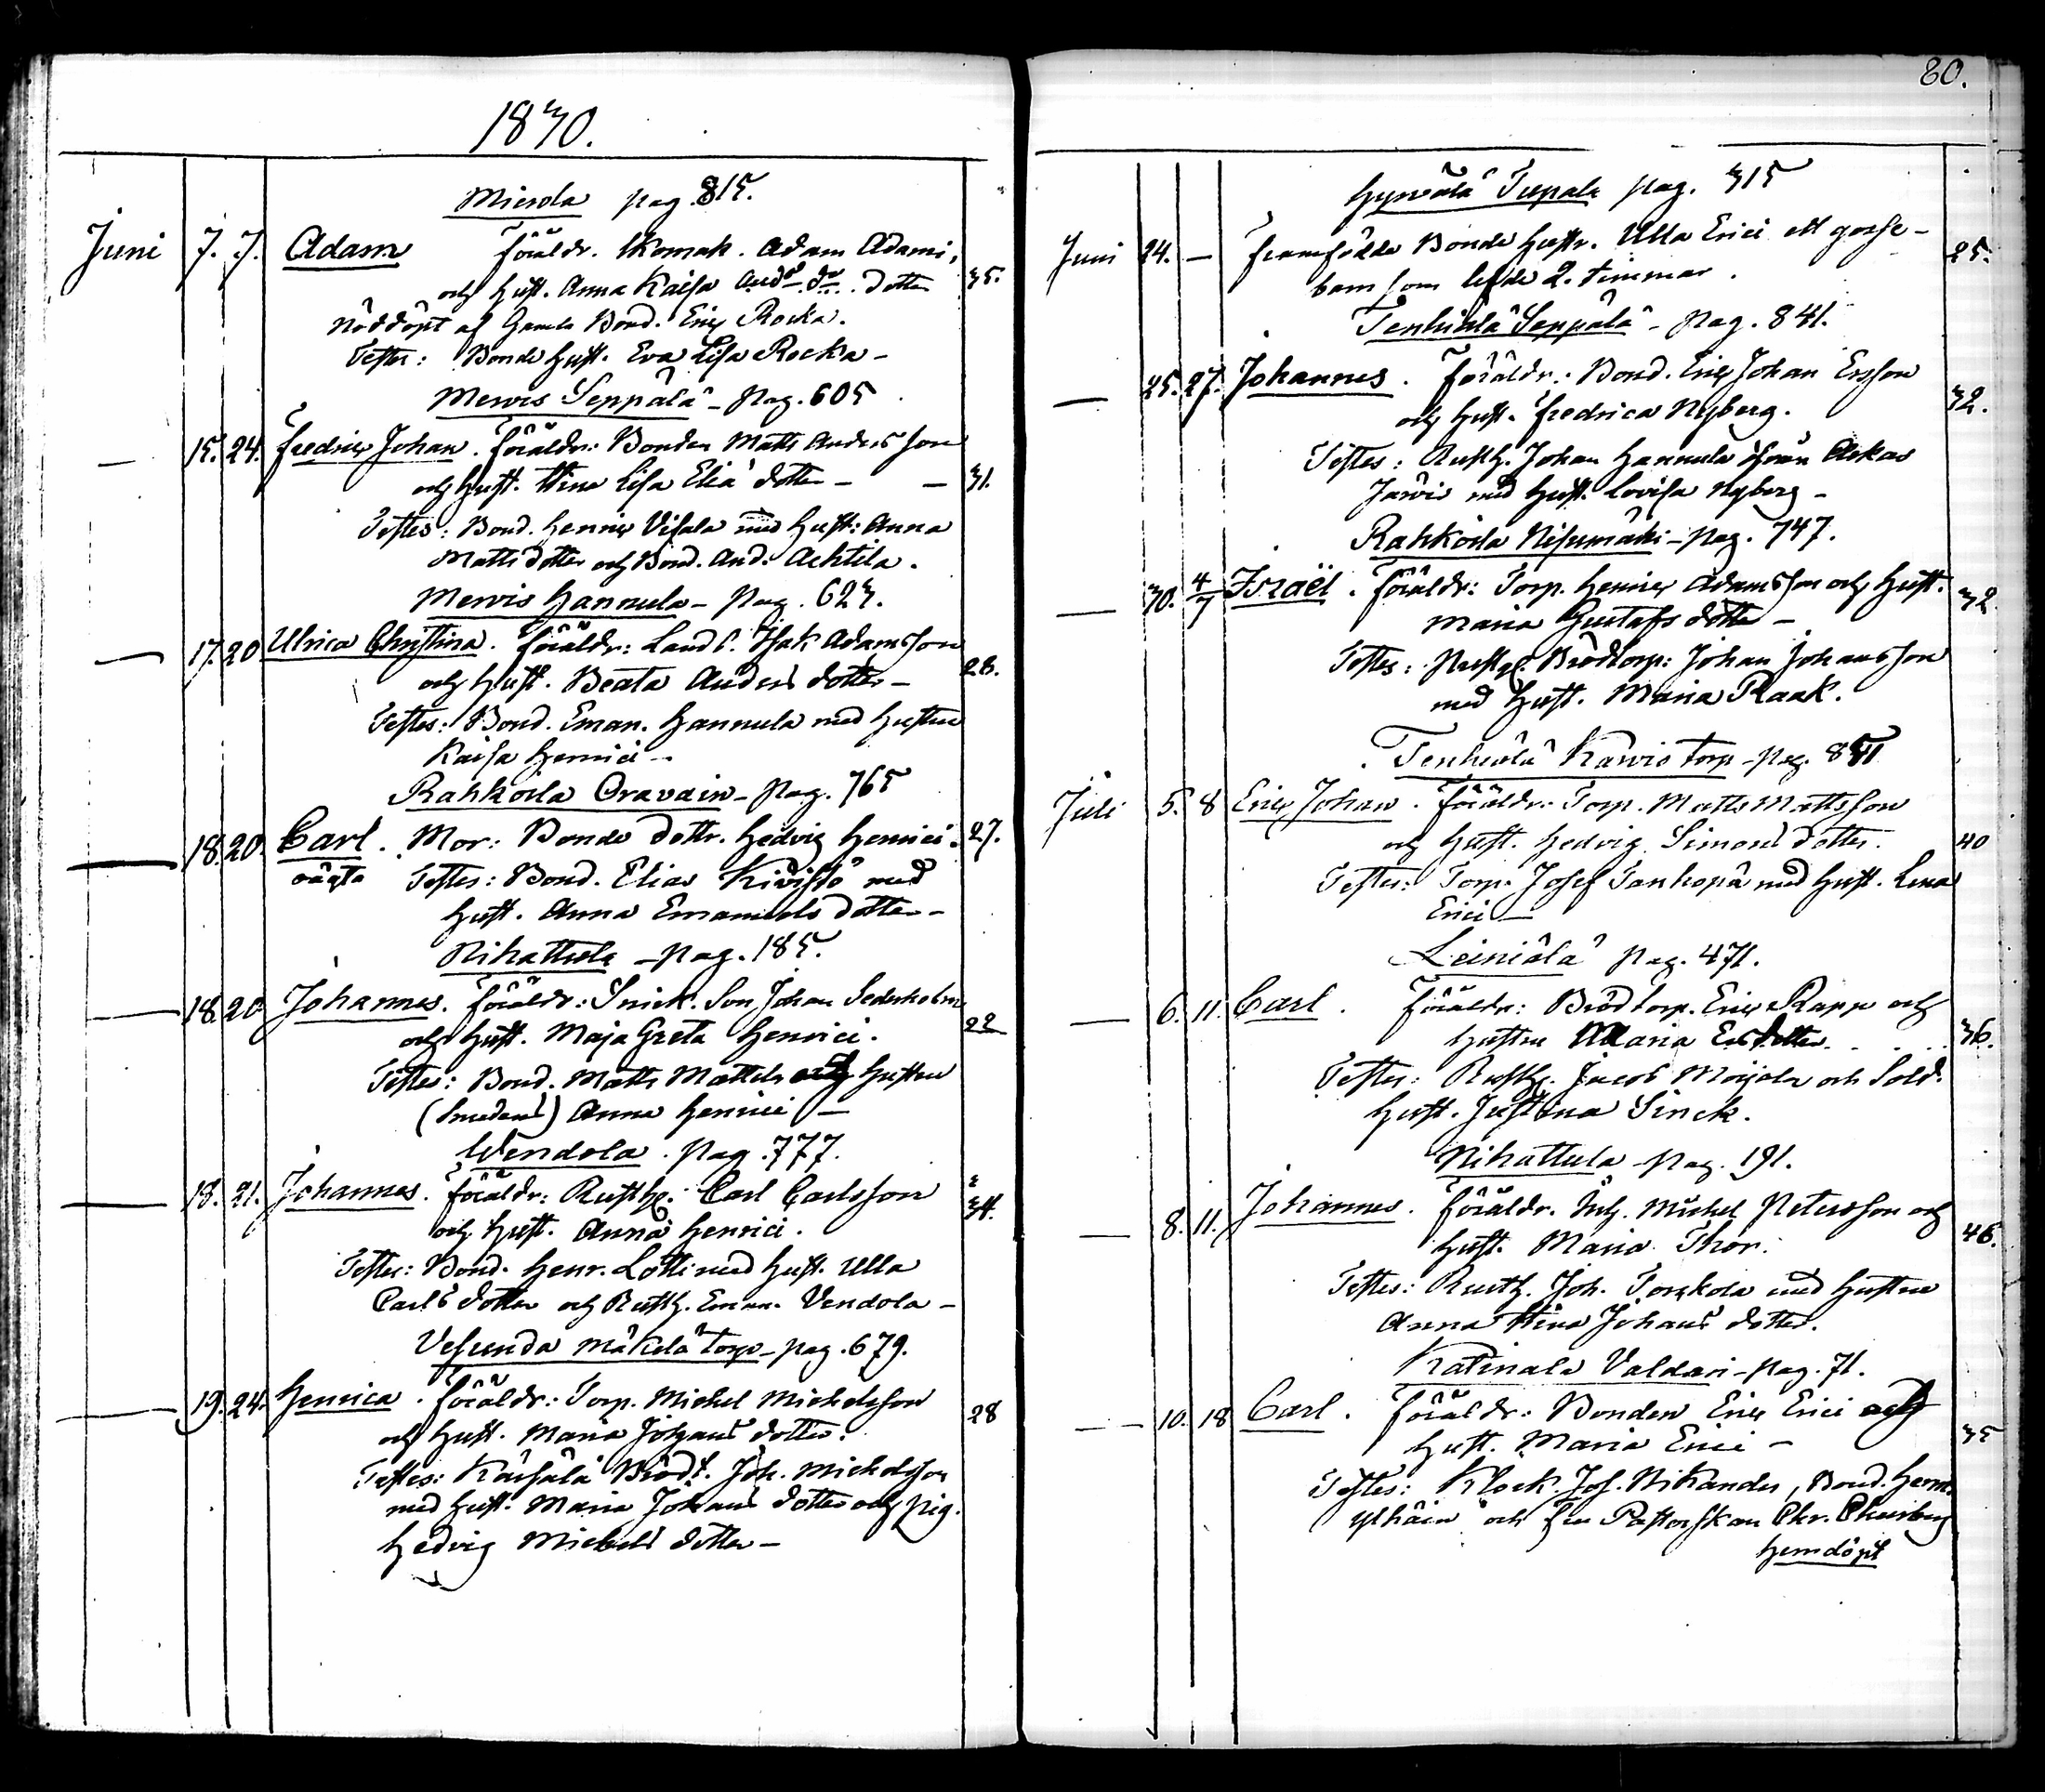 1830.
Mierola pag. 815.
Juni 7. 7. Adam föräldr. Skomak. Adam Adami,
och hust. Anna Kaisa And: dr. dotter 35.
nöddöpt af Gamle Bond. Eric Rocka.
Testes: Bonde hust. Eva Lisa Rocka -
Mervis Seppälä - pag. 605
— 15. 24. Fredric Johan. föräldr: Bonden Matts Andersson
och hust. Stina Lisa Eliä dotter - - 31.
Testes: Bond. Henric Visala med hust: Anna
Mattsdotter och Bond. And: Achtila.
Mervis Hannula - pag. 623.
— 17. 20 Ulrica Christina. föräldr: Landb. Isak Adamsson
och hust. Beata Anders dotter - 28.
Testes: Bond. Eman. Hannula med hustru
Kaisa Henrici -
Rahkoila Oravain - pag. 765
— 18. 20. Carl. Mor: Bonde dottr. Hedvig Henrici. 27.
oägta Testes: Bond. Elias Kivistö med
hust. Anna Emanuels dotter -
Nihattula - pag. 185.
— 18. 20 Johannes. föräldr: Snick. Son Johan Sederholm
och hust. Maja Greta Henrici. 22
Testes: Bond. Matts Mattila och hustru
(Smedens) Anna Henrici -
Wendola. pag. 777.
— 18. 21. Johannes. föräldr: Rusth. Carl Carlsson
och hust. Anna Henrici. 34.
Testes: Bond. Henr. Lotti med hust. Ulla
Carls dotter och Rusth. Eman. Vendola -
Vesunda Mäkelä torp - pag. 679.
— 19. 24. Henrica. föräldr: Torp. Michel Michelsson
och hust. Maria Johans dotter. 28
Testes: Karsälä Brödt. Joh. Michelsson
med hust. Maria Johans dotter och pig.
Hedvig Michels dotter -
80.
Hyrvälä Teepala pag. 315
Juni 24. — framfödde Bonde hustr. Ulla Erici ett gosse-
barn som lefde 2. timmar. 25.
Tenhiälä Seppälä - pag. 841.
— 25. 27. Johannes. föräldr: Bond. Eric Johan Ersson
och hust. Fredrica Nyberg. 32.
Testes: Rusth. Johan Hannula ifrån Ackas
Jarvis med hust. Lovisa Nyberg -
Rahkoila Nisumäki - pag. 747.
— 30. 4/7 Israël. föräldr: Torp. Henric Adamsson och hust.
Maria Gustafs dotter - 32
Testes: Brödtorp: Johan Johansson
med hust. Maria Raak.
Tenhiälä Kawis torp - pag. 851
Juli 5. 8 Eric Johan. föräldr: Torp. Matts Mattsson
och hust. Hedvig Simons dotter. 40
Testes: Torp. Josef Tanhopä med hust. Lena
Erici -
Leiniälä pag. 471.
— 6. 11. Carl. föräldr: Brödtorp. Eric Rapp och
hustru Maria Ersdotter. . . . 36.
Testes: Rusth. Jacob Moijala och Sold.
hust. Justina Sinck.
Nihattula - pag. 191.
— 8. 11. Johannes. föräldr. Inh. Michel Petersson och
hust. Maria Thor. 46.
Testes: Rusth. Joh. Torckola med hustru
Anna Stina Johans dotter.
Katinala Valdari - pag. 71.
— 10. 18 Carl. föräldr: Bonden Eric Erici och
hust. Maria Erici - 35
Testes: Klock. Jos. Nikander, Bond. Herm.
Ylhäin och fru Pastorskan Chr.
hemdöpt